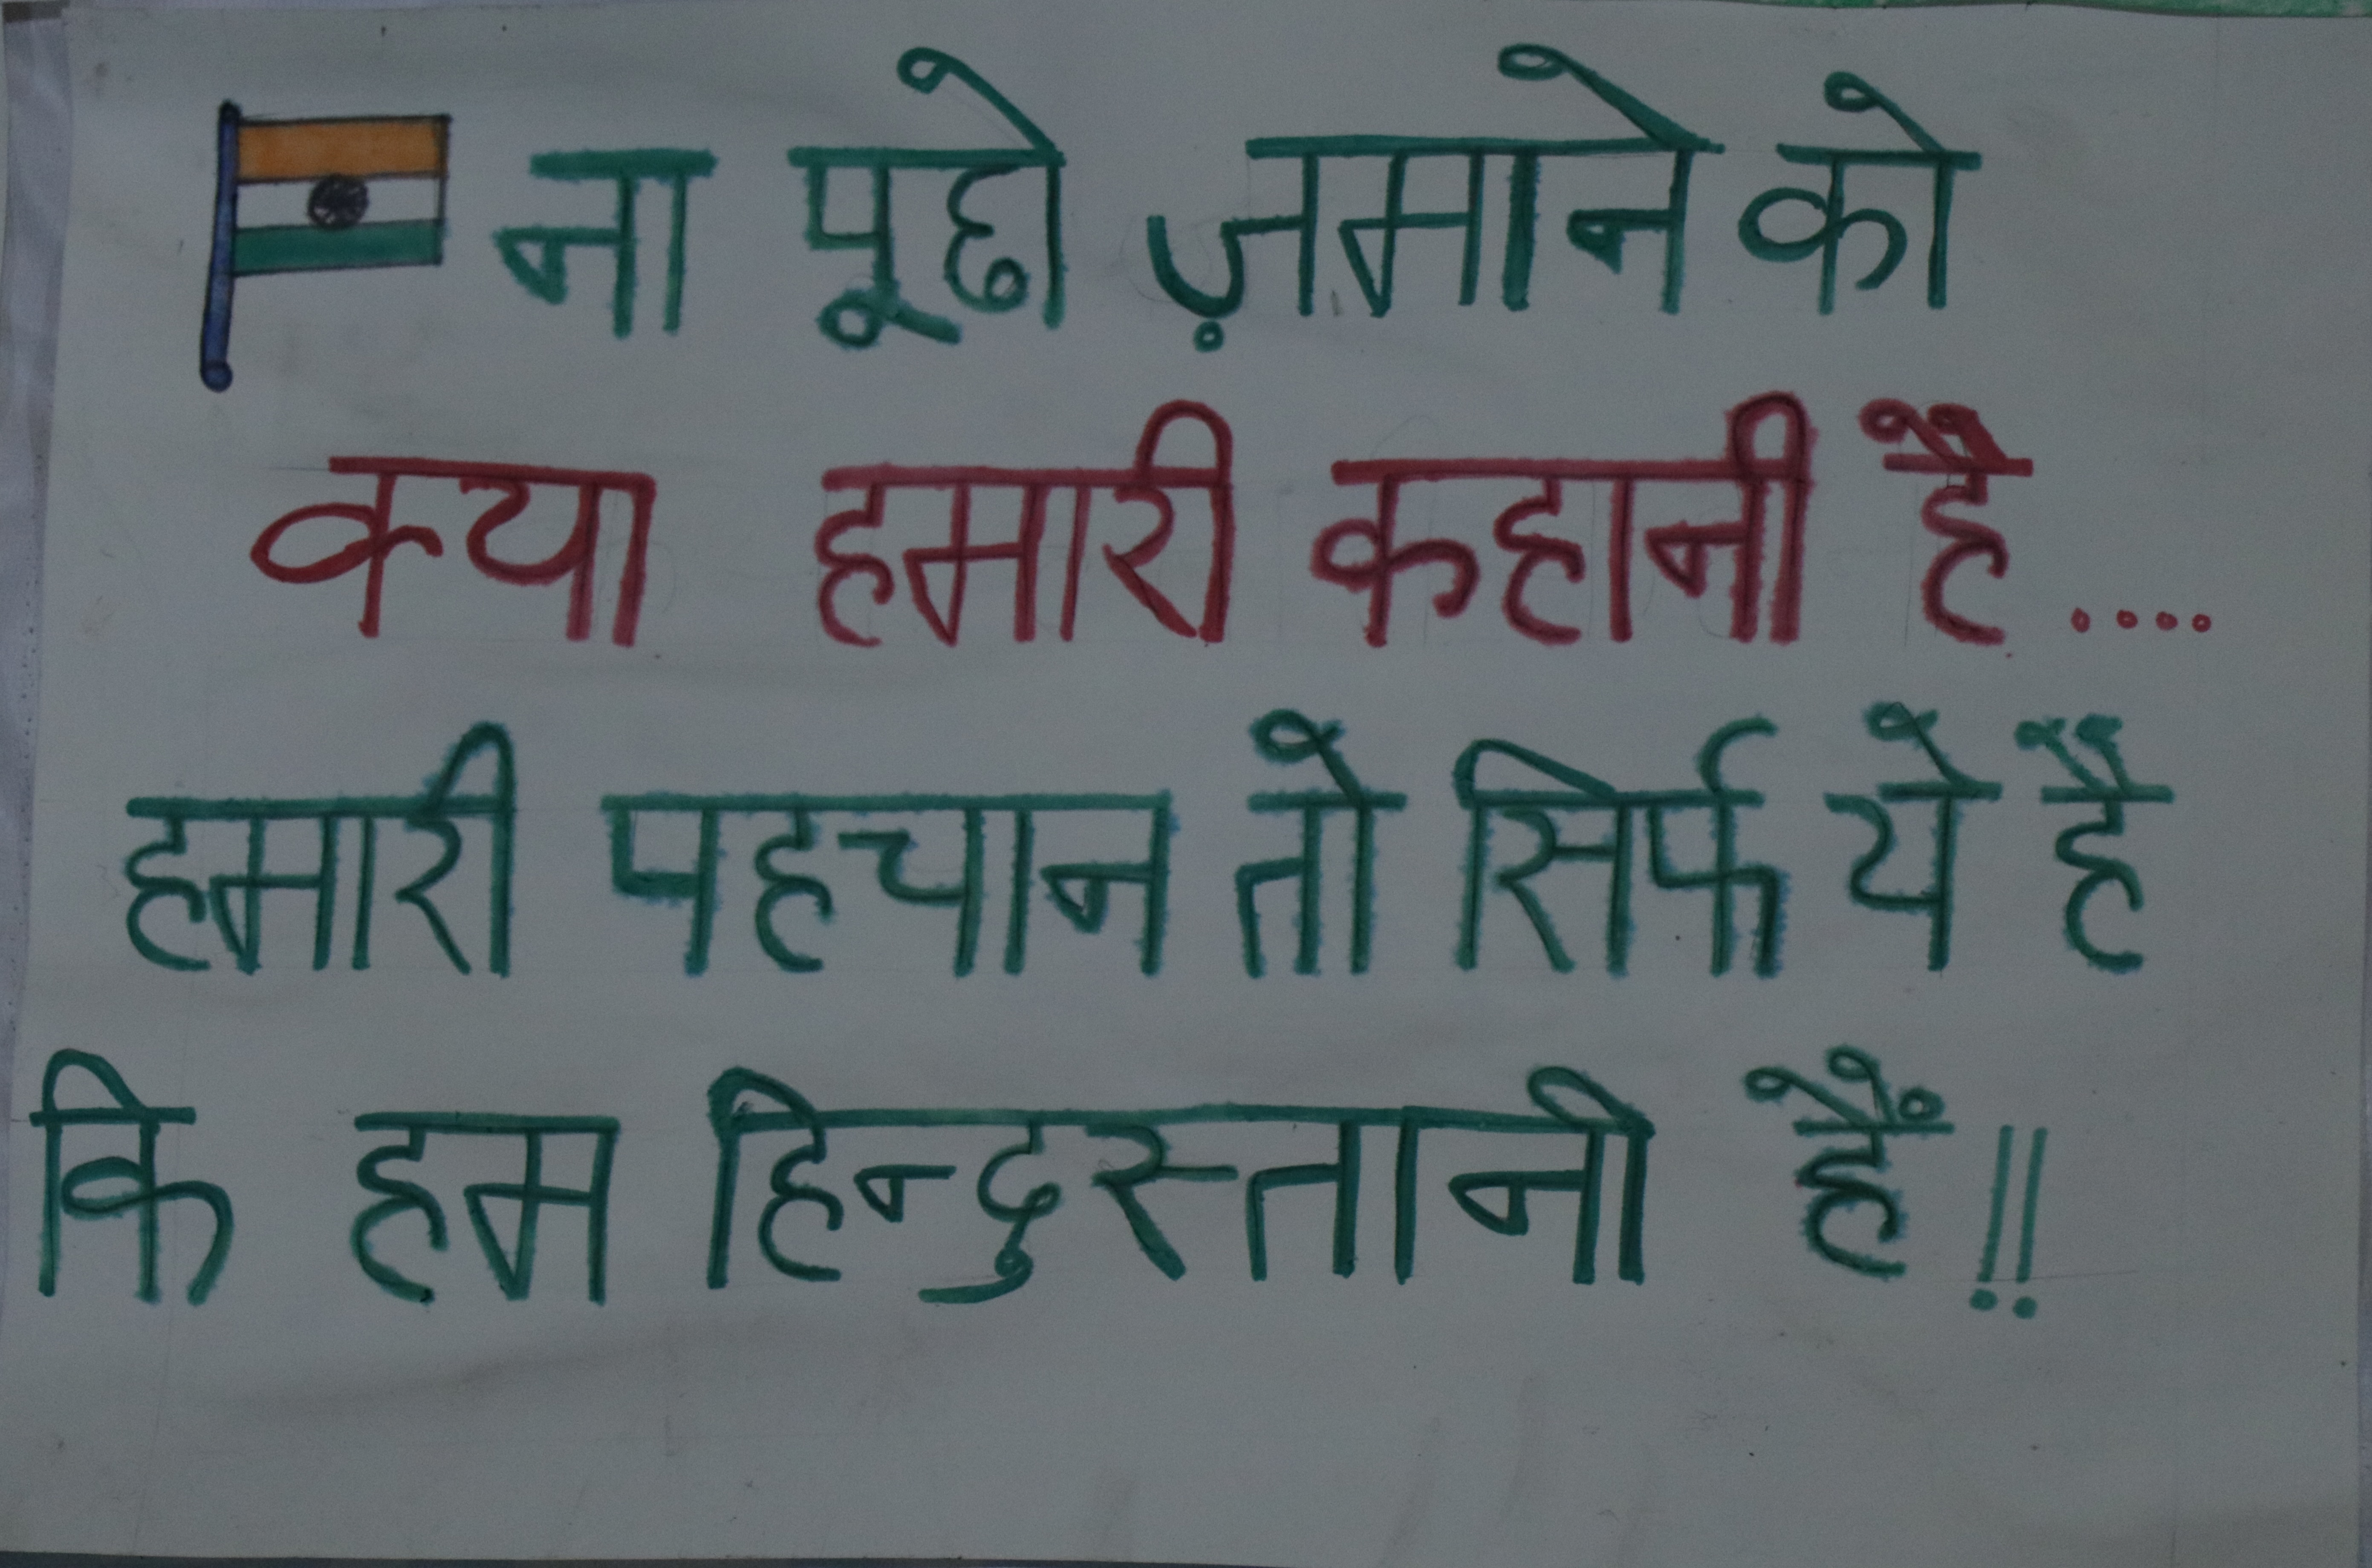 ना पूछो ज़माने को
क्या हमारी कहानी है....
हमारी पहचान तो सिर्फ ये है
कि हम हिन्दुस्तानी हैं!!